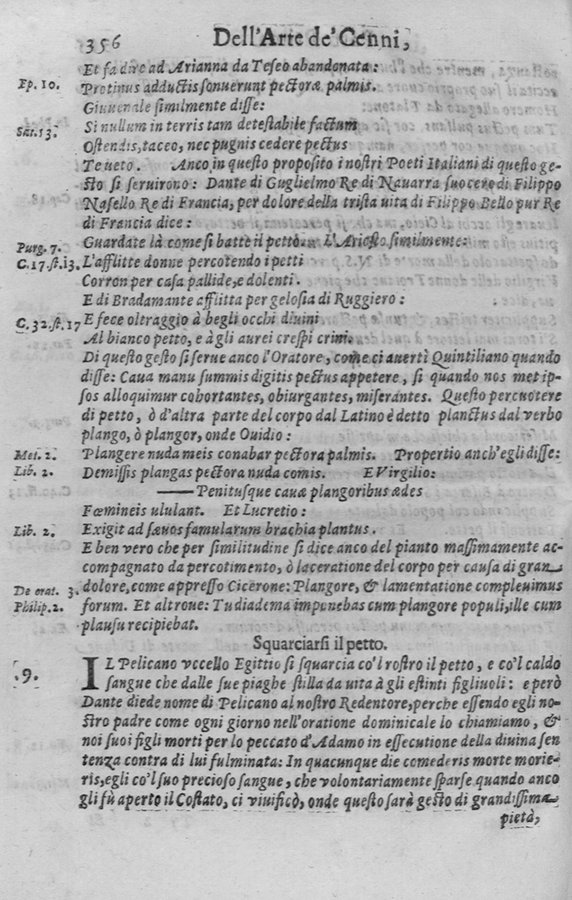 356 Dell'Arte de' Cenni,
Et fa dire ad Arianna da Teseo abandonata:
Ep. 10. Protinus adductis sonuerunt pectora palmis.
Giuuenale similmente disse:
Sat. 13. Si nullum in terris tam detestabile factum
Ostendis, taceo, nec pugnis cedere pectus
Te ueto. Anco in questo proposito i nostri Poeti Italiani di questo ge-
sto si seruirono: Dante di Guglielmo Re di Nauarra suocero di Filippo
Nasello Re di Francia, per dolore della trista uita di Filippo Bello pur Re
di Francia dice:
Purg. 7. Guardate là come si batte il petto. L'Ariosto similmente:
C. 17. st. 13. L'afflitte donne percotendo i petti
Corron per casa pallide, e dolenti.
E di Bradamante afflitta per gelosia di Ruggiero:
C. 32. st. 17 E fece oltraggio à begli occhi diuini
Al bianco petto, e à gli aurei crespi crini.
Di questo gesto si serue anco l'Oratore, come ci auertì Quintiliano quando
disse: Caua manu summis digitis pectus appetere, si quando nos met ip-
sos alloquimur cohortantes, obiurgantes, miserantes. Questo percuotere
di petto, ò d'altra parte del corpo dal Latino è detto planctus dal verbo
plango, ò plangor, onde Ouidio:
Met. 2. Plangere nuda meis conabar pectora palmis. Propertio anch'egli disse:
Lib. 2. Demissis plangas pectora nuda comis. E Virgilio:
—— Penitusque cauæ plangoribus ædes
Fœmineis ululant. Et Lucretio:
Lib. 2. Exigit ad sæuos famularum brachia plantus.
E ben vero che per similitudine si dice anco del pianto massimamente ac-
compagnato da percotimento, ò laceratione del corpo per causa di gran
De orat. 3. dolore, come appresso Cicerone: Plangore, & lamentatione compleuimus
Philip. 2. forum. Et altroue: Tu diadema imponebas cum plangore populi, ille cum
plausu recipiebat.
Squarciarsi il petto.
.9. IL Pelicano vccello Egittio si squarcia co'l rostro il petto, e co'l caldo
sangue che dalle sue piaghe stilla da uita à gli estinti figliuoli: e però
Dante diede nome di Pelicano al nostro Redentore, perche essendo egli no-
stro padre come ogni giorno nell'oratione dominicale lo chiamiamo, &
noi suoi figli morti per lo peccato d'Adamo in essecutione della diuina sen
tenza contra di lui fulminata: In quacunque die comederis morte morie-
ris, egli co'l suo precioso sangue, che volontariamente sparse quando anco
gli fù aperto il Costato, ci viuificò, onde questo sarà gesto di grandissima
pietà,